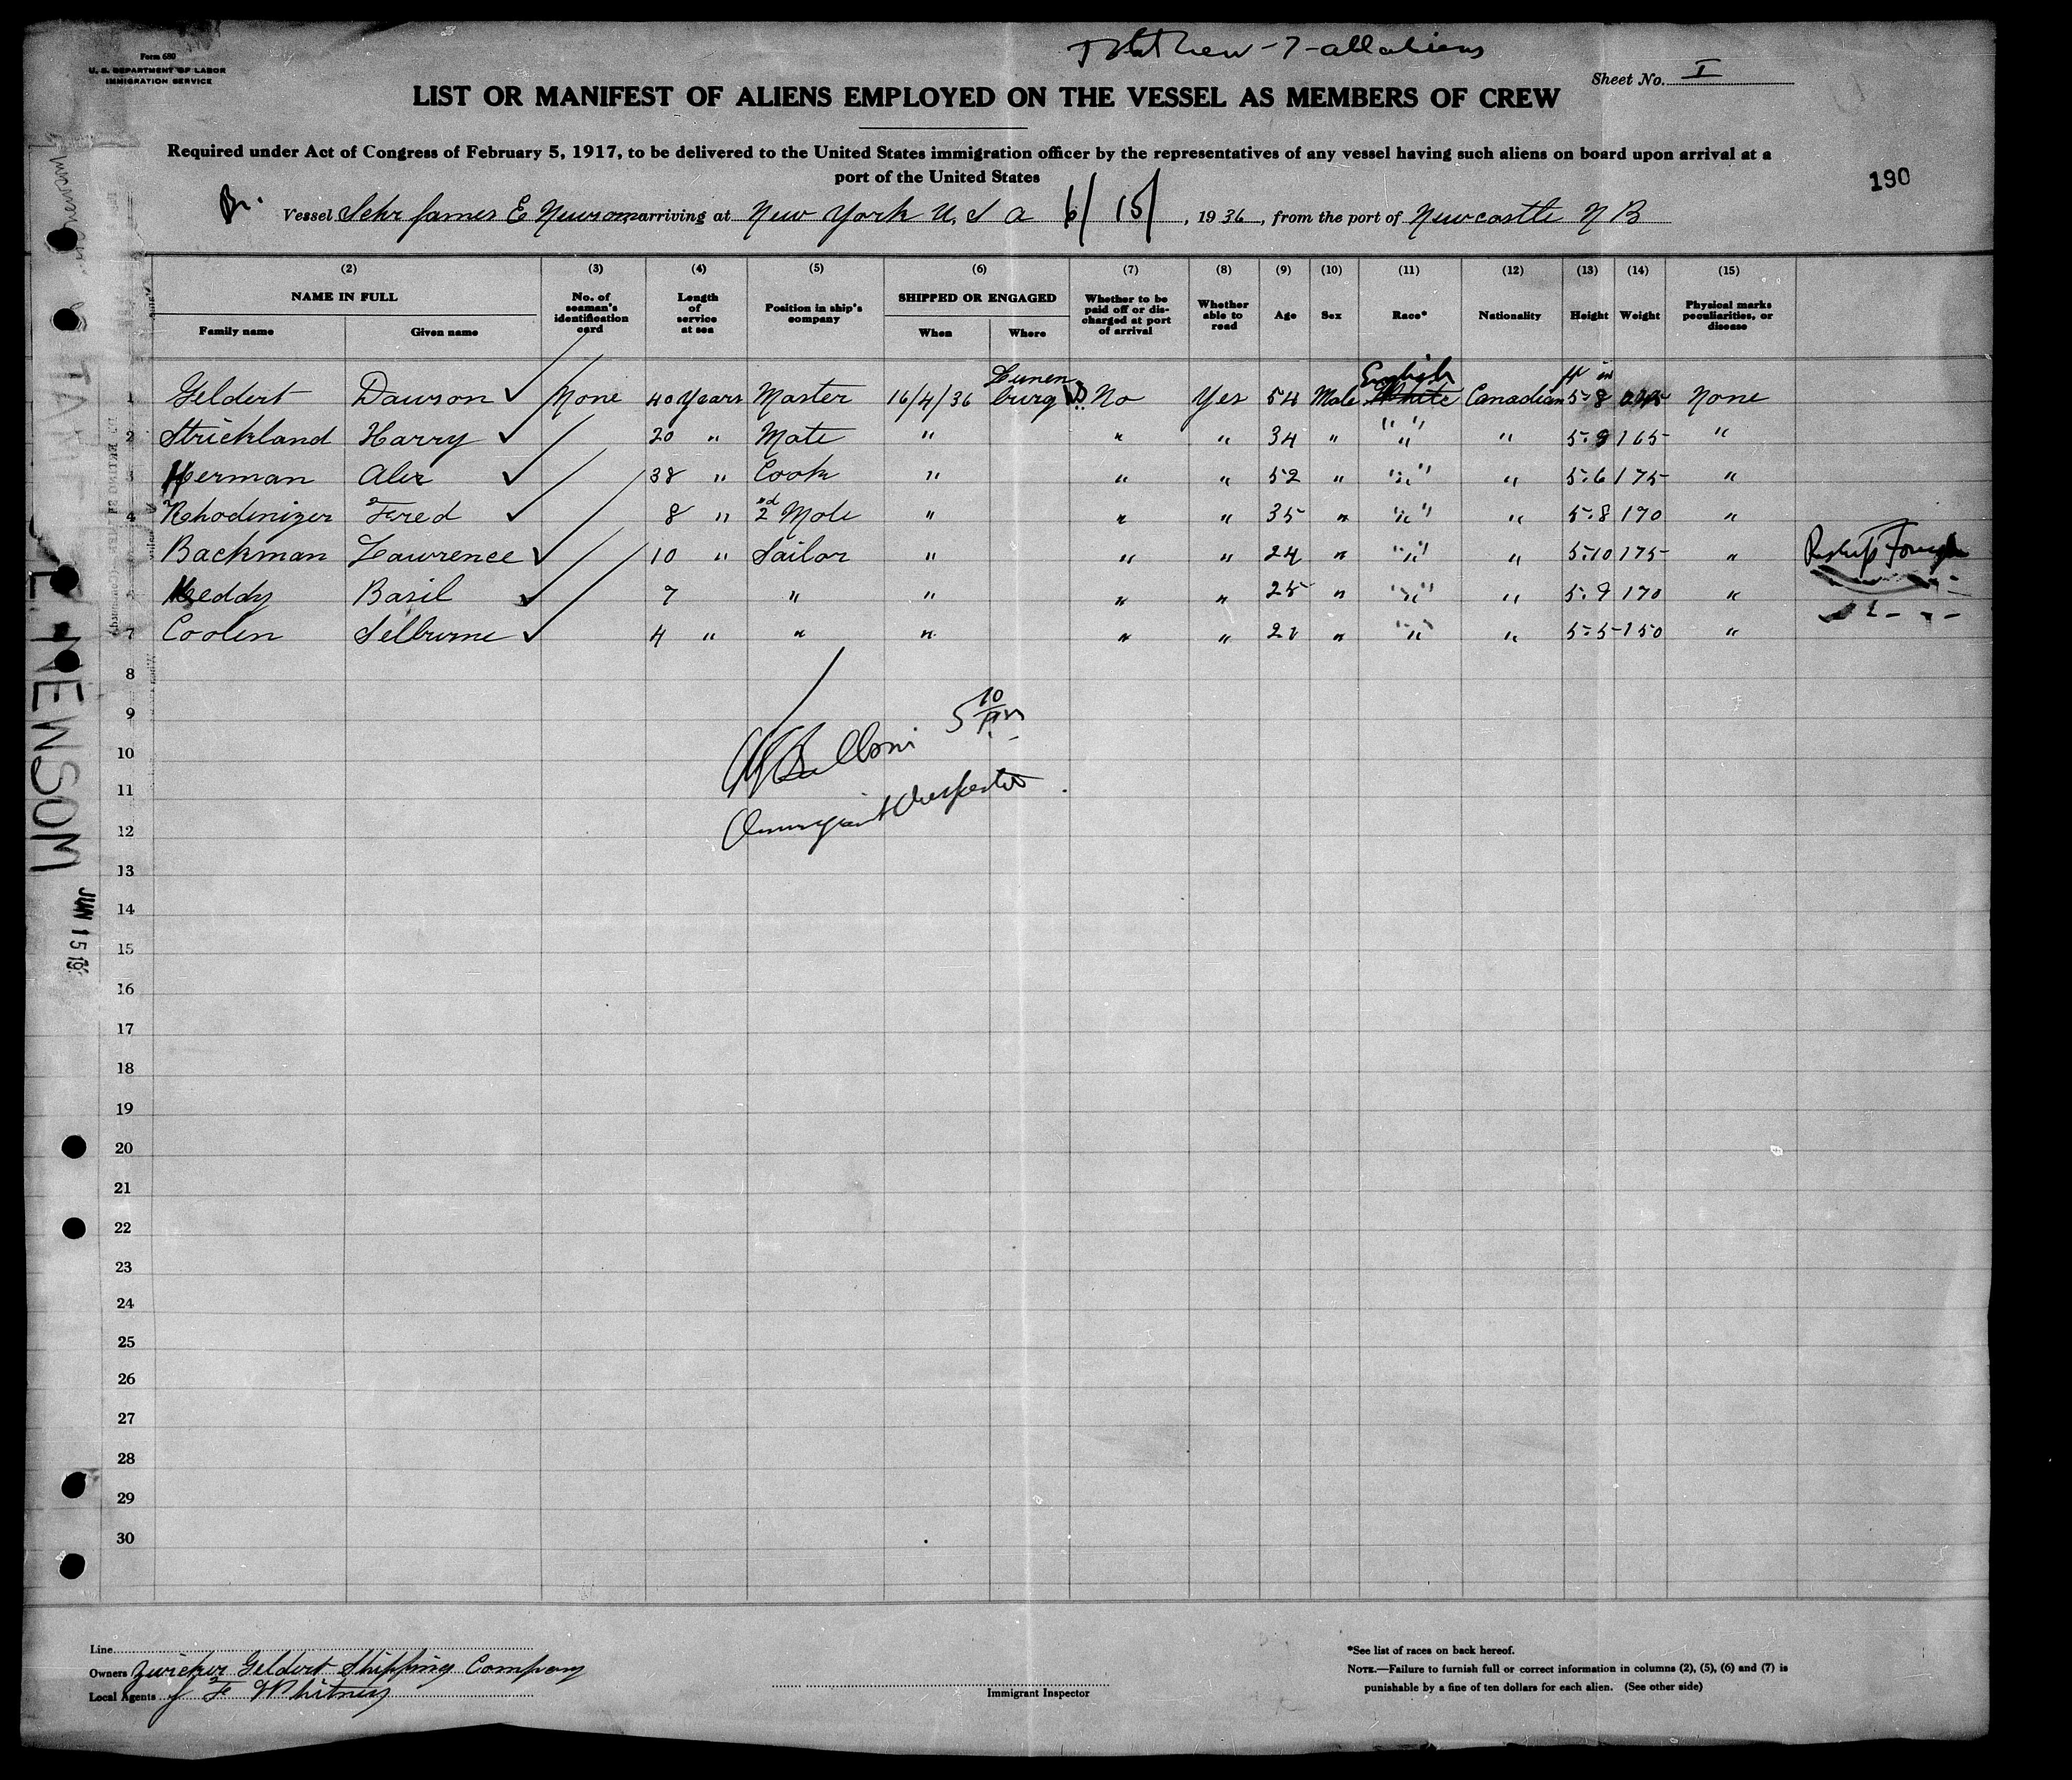 Form 680
U. S. DEPARTMENT OF LABOR
IMMIGRATION SERVICE
7 - all aliens
Sheet No. I
LIST OR MANIFEST OF ALIENS EMPLOYED ON THE VESSEL AS MEMBERS OF CREW
Required under Act of Congress of February 5, 1917, to be delivered to the United States immigration officer by the representatives of any vessel having such aliens on board upon arrival at a
port of the United States
190
Br. Vessel Schr James E Newsom arriving at New York U, S A 6/15/, 1936, from the port of Newcastle N B
(2) (3) (4) (5) (6) (7) (8) (9) (10) (11) (12) (13) (14) (15)
NAME IN FULL Family name Given name No. of seaman's identification card Length of service at sea Position in ship's company SHIPPED OR ENGAGED When Where Whether to be paid off or discharged at port of arrival Whether able to read Age Sex Race* Nationality Height Weight Physical marks peculiarities, or disease
ft in
1 Geldert Dawson None 40 Years Master 16/4/36 Lunenburg No Yes 54 Male White English Canadian 5-8 None
2 Strickland Harry 20 " Mate " " " 34 " " " 5.9 165 "
3 Herman Alex 38 " Cook " " " 52 " " " 5.6 175 "
4 Rhodenizer Fred 8 " 2nd Mate " " " 35 " " " 5.8 170 "
5 Backman Lawrence 10 " Sailor " " " 24 " " " 5.10 175 "
6 Keddy Basil 7 " " " " 25 " " " 5.9 170 "
7 Coolen Selburne 4 " " " " " 21 " " " 5.5 150 "
8
9
5 10/PM
10
11
Immigrant Inspector
12
13
14
15
16
17
18
19
20
21
22
23
24
25
26
27
28
29
30
E. NEWSOM
JUN 15 19
Line
Owners Zwicker Geldert Shipping Company
Local Agents J F Whitney
Immigrant Inspector
*See list of races on back hereof.
NOTE.—Failure to furnish full or correct information in columns (2), (5), (6) and (7) is
punishable by a fine of ten dollars for each alien. (See other side)